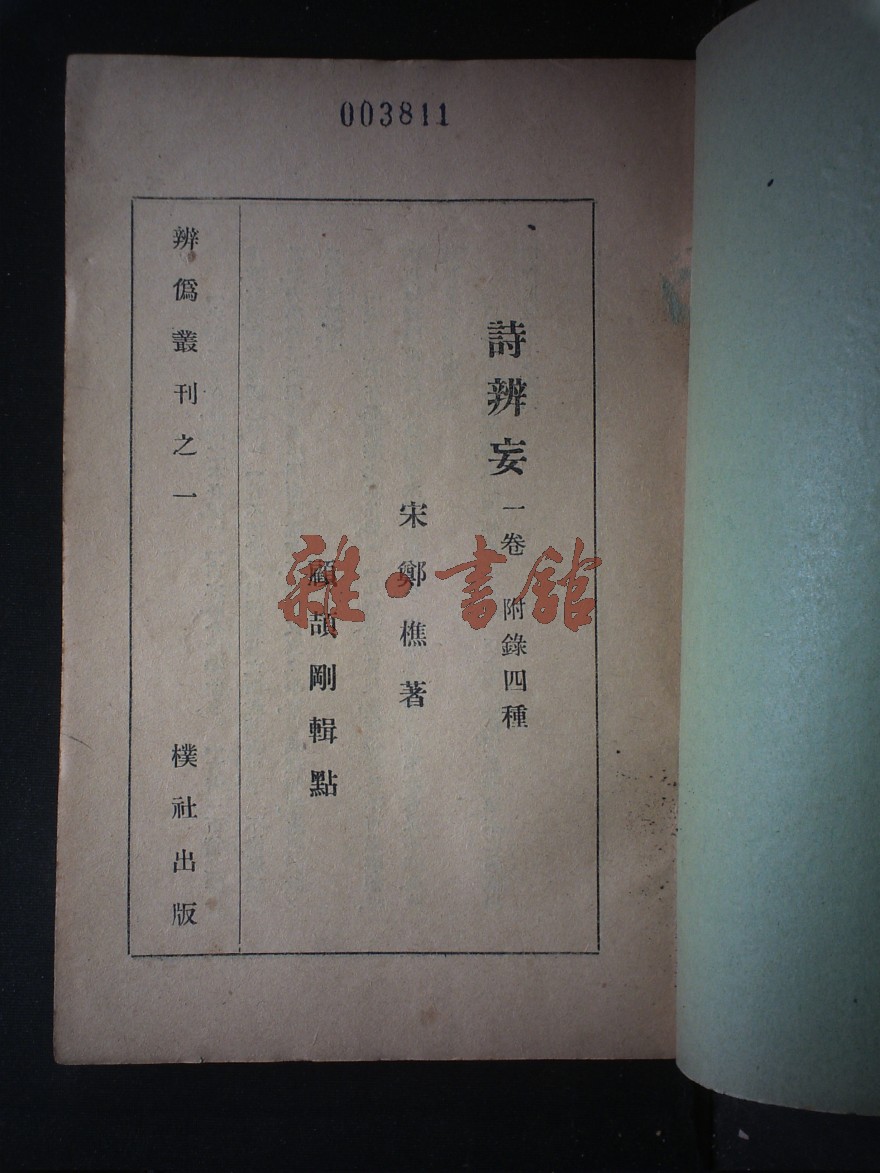 003811
詩辨妄 一卷 附錄四種
宋鄭樵著
顧頡剛輯點
辨僞叢刊之一
樸社出版
雜·書館